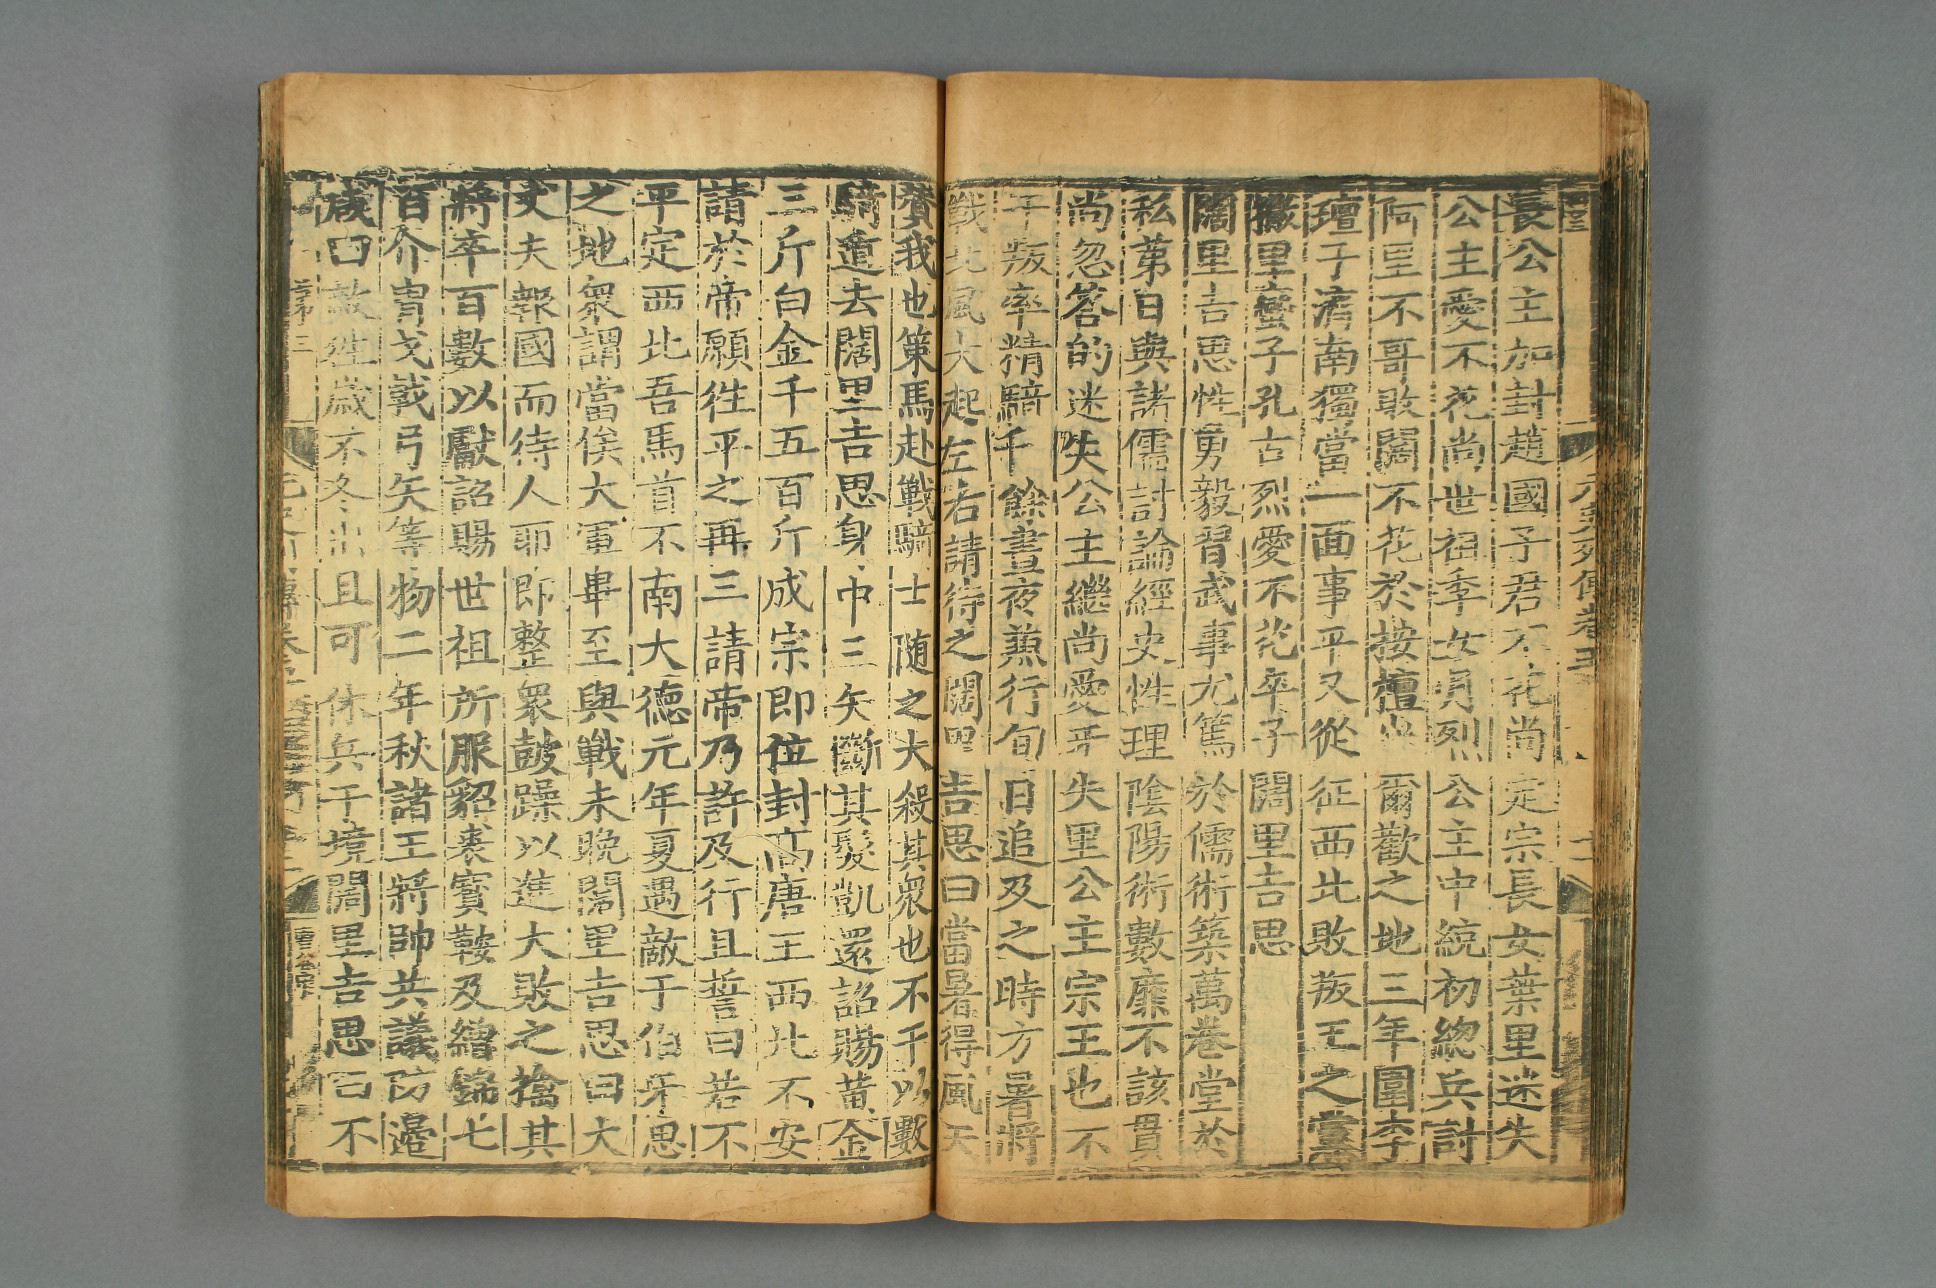 長公主加封趙國子君不花尚定宗長女葉里迷失
公主愛不花尚世祖季女月烈公主中統初總兵討
阿里不哥敗闊不花於按檀火爾歡之地三年圍李
璮于濟南獨當一面事平又從征西北敗叛王之黨
撒里蠻子孔古烈愛不花卒子闊里吉思
闊里吉思性勇毅習武事尤篤於儒術築萬卷堂於
私第日與諸儒討論經史性理陰陽術數靡不該貫
尚忽答的迷失公主繼尚愛牙失里公主宗王也不
干叛率精騎千餘晝夜兼行旬日追及之時方暑將
戰北風大起左右請待之闊里吉思曰當暑得風天
贊我也策馬赴戰騎士隨之大殺其衆也不干以數
騎遁去闊里吉思身中三矢斷其髮凱還詔賜黃金
三斤白金千五百斤成宗即位封高唐王西北不安
請於帝願徃平之再三請帝乃許及行且誓曰若不
平定西北吾馬首不南大德元年夏遇敵于伯牙思
之地衆謂當俟大軍畢至與戰未晚闊里吉思曰大
丈夫報國而待人耶即整衆鼓躁以進大敗之擒其
將卒百數以獻詔賜世祖所服貂裘寶鞍及繒錦七
百介冑戈戟弓矢等物二年秋諸王將帥共議防邊
咸曰敵徃歲不冬出且可休兵于境闊里吉思曰不